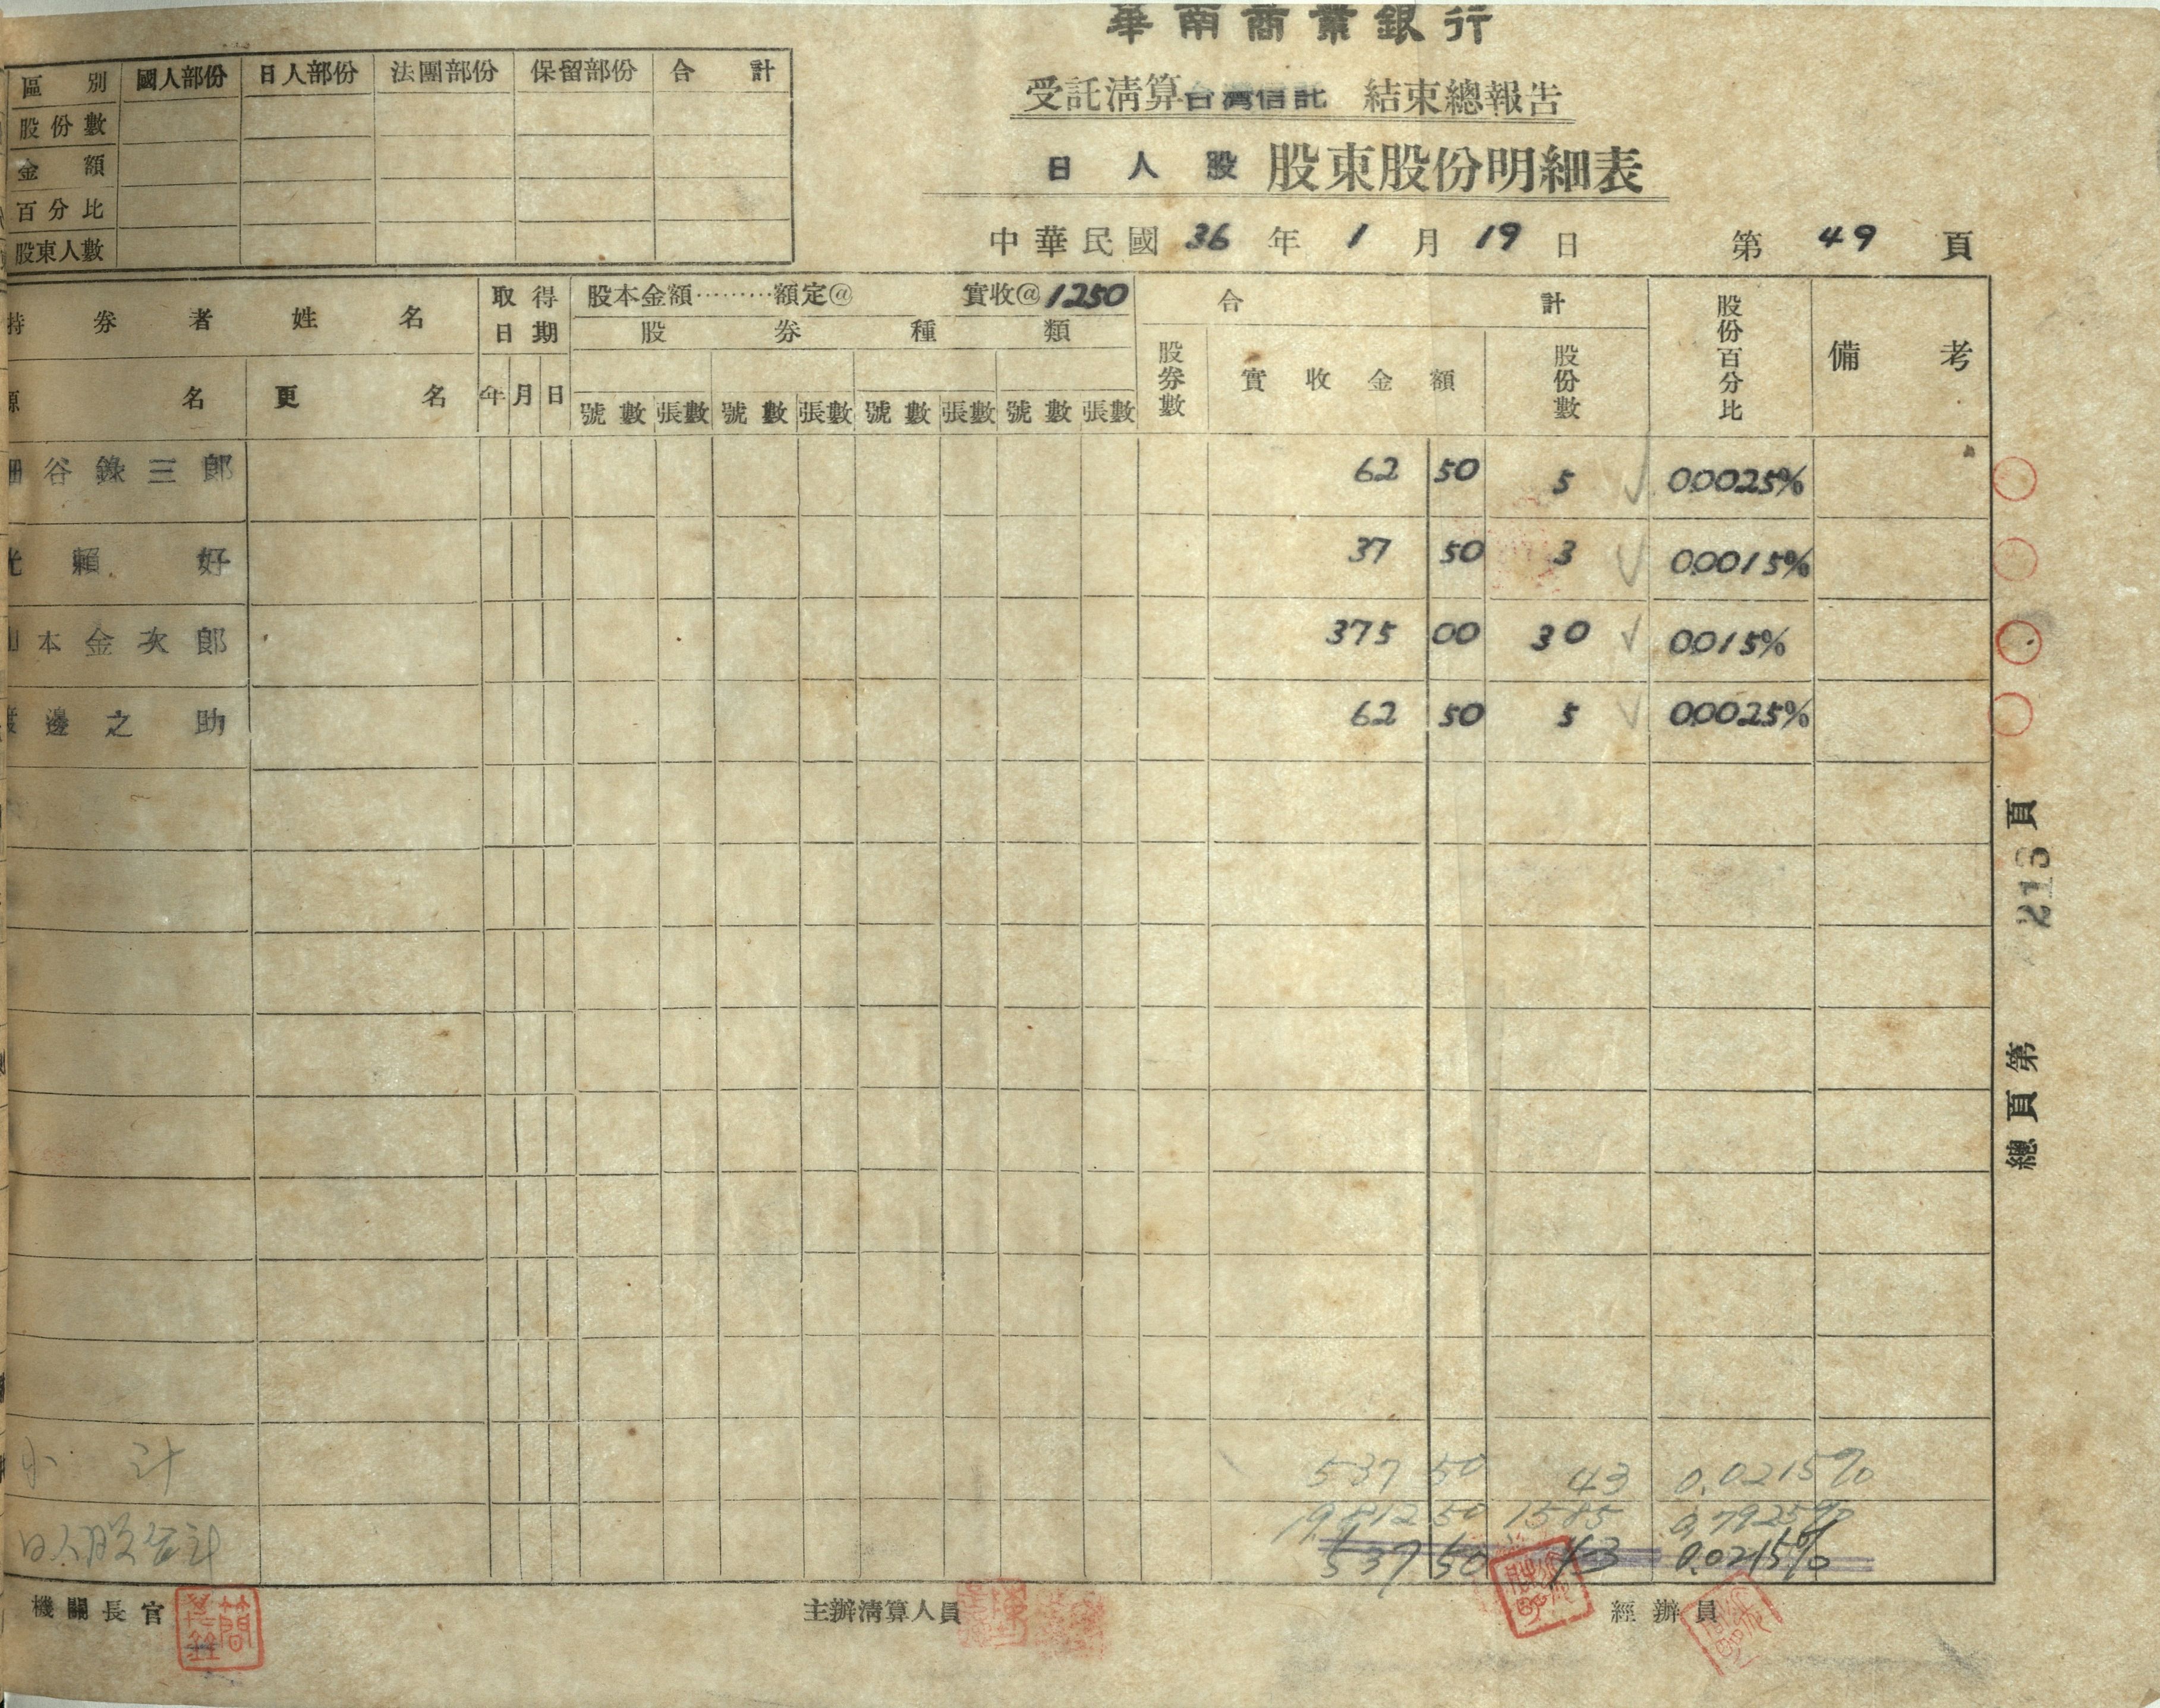 華南商業銀行
受託淸算台灣信託 結束總報告
日人股 股東股份明細表
中華民國 36 年 1 月 19 日 第 49 頁
區別 國人部份 日人部份 法團部份 保留部份 合計
股份數
金額
百分比
股東人數
持券者姓名 取得日期 股本金額………額定@ 實收@1250 合計 股份百分比 備考
股券種類
原名 更名 年 月 日 股券數 實收金額 股份數
號數 張數 號數 張數 號數 張數 號數 張數
細谷錄三郎 62 50 5 √ 00025%
光賴好 37 50 3 √ 00015%
山本金次郎 375 00 30 √ 0015%
渡邊之助 62 50 5 √ 00025%
總頁第 213 頁
小計 537 50 43 0.0215%
日人股合計 19,812 50 1585 0.7925%
537 50 43 0.0215%
機關長官 主辦淸算人員 經辦員